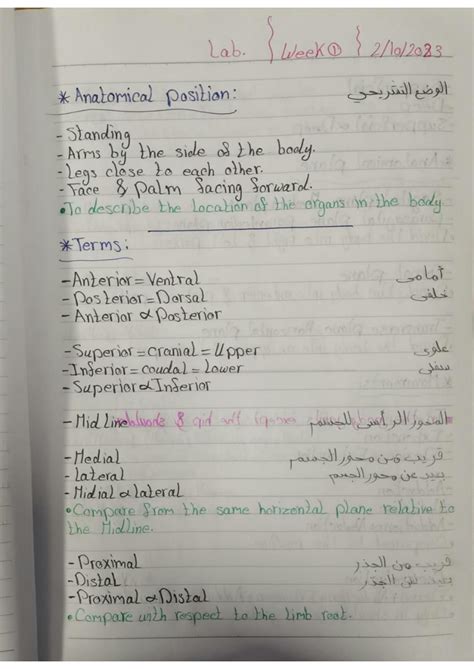 Lab. { Week ① } 2/10/2023
* Anatomical position: الوضع التشريحي
- Standing
- Arms by the side of the body.
- Legs close to each other.
- Face & Palm facing forward.
• To describe the location of the organs in the body
* Terms:
- Anterior = Ventral أمامى
- Posterior = Dorsal خلفى
- Anterior α Posterior
- Superior = cranial = Upper علوى
- Inferior = caudal = Lower سفلى
- Superior α Inferior
- Mid Line المحور الرأسى للجسم
- Medial قريب من محور الجسم
- Lateral بعيد عن محور الجسم
- Midial α lateral
• Compare from the same horizental plane relative to
the Midline.
- Proximal قريب من الجذر
- Distal بعيد عن الجذر
- Proximal α Distal
• Compare with respect to the limb root.